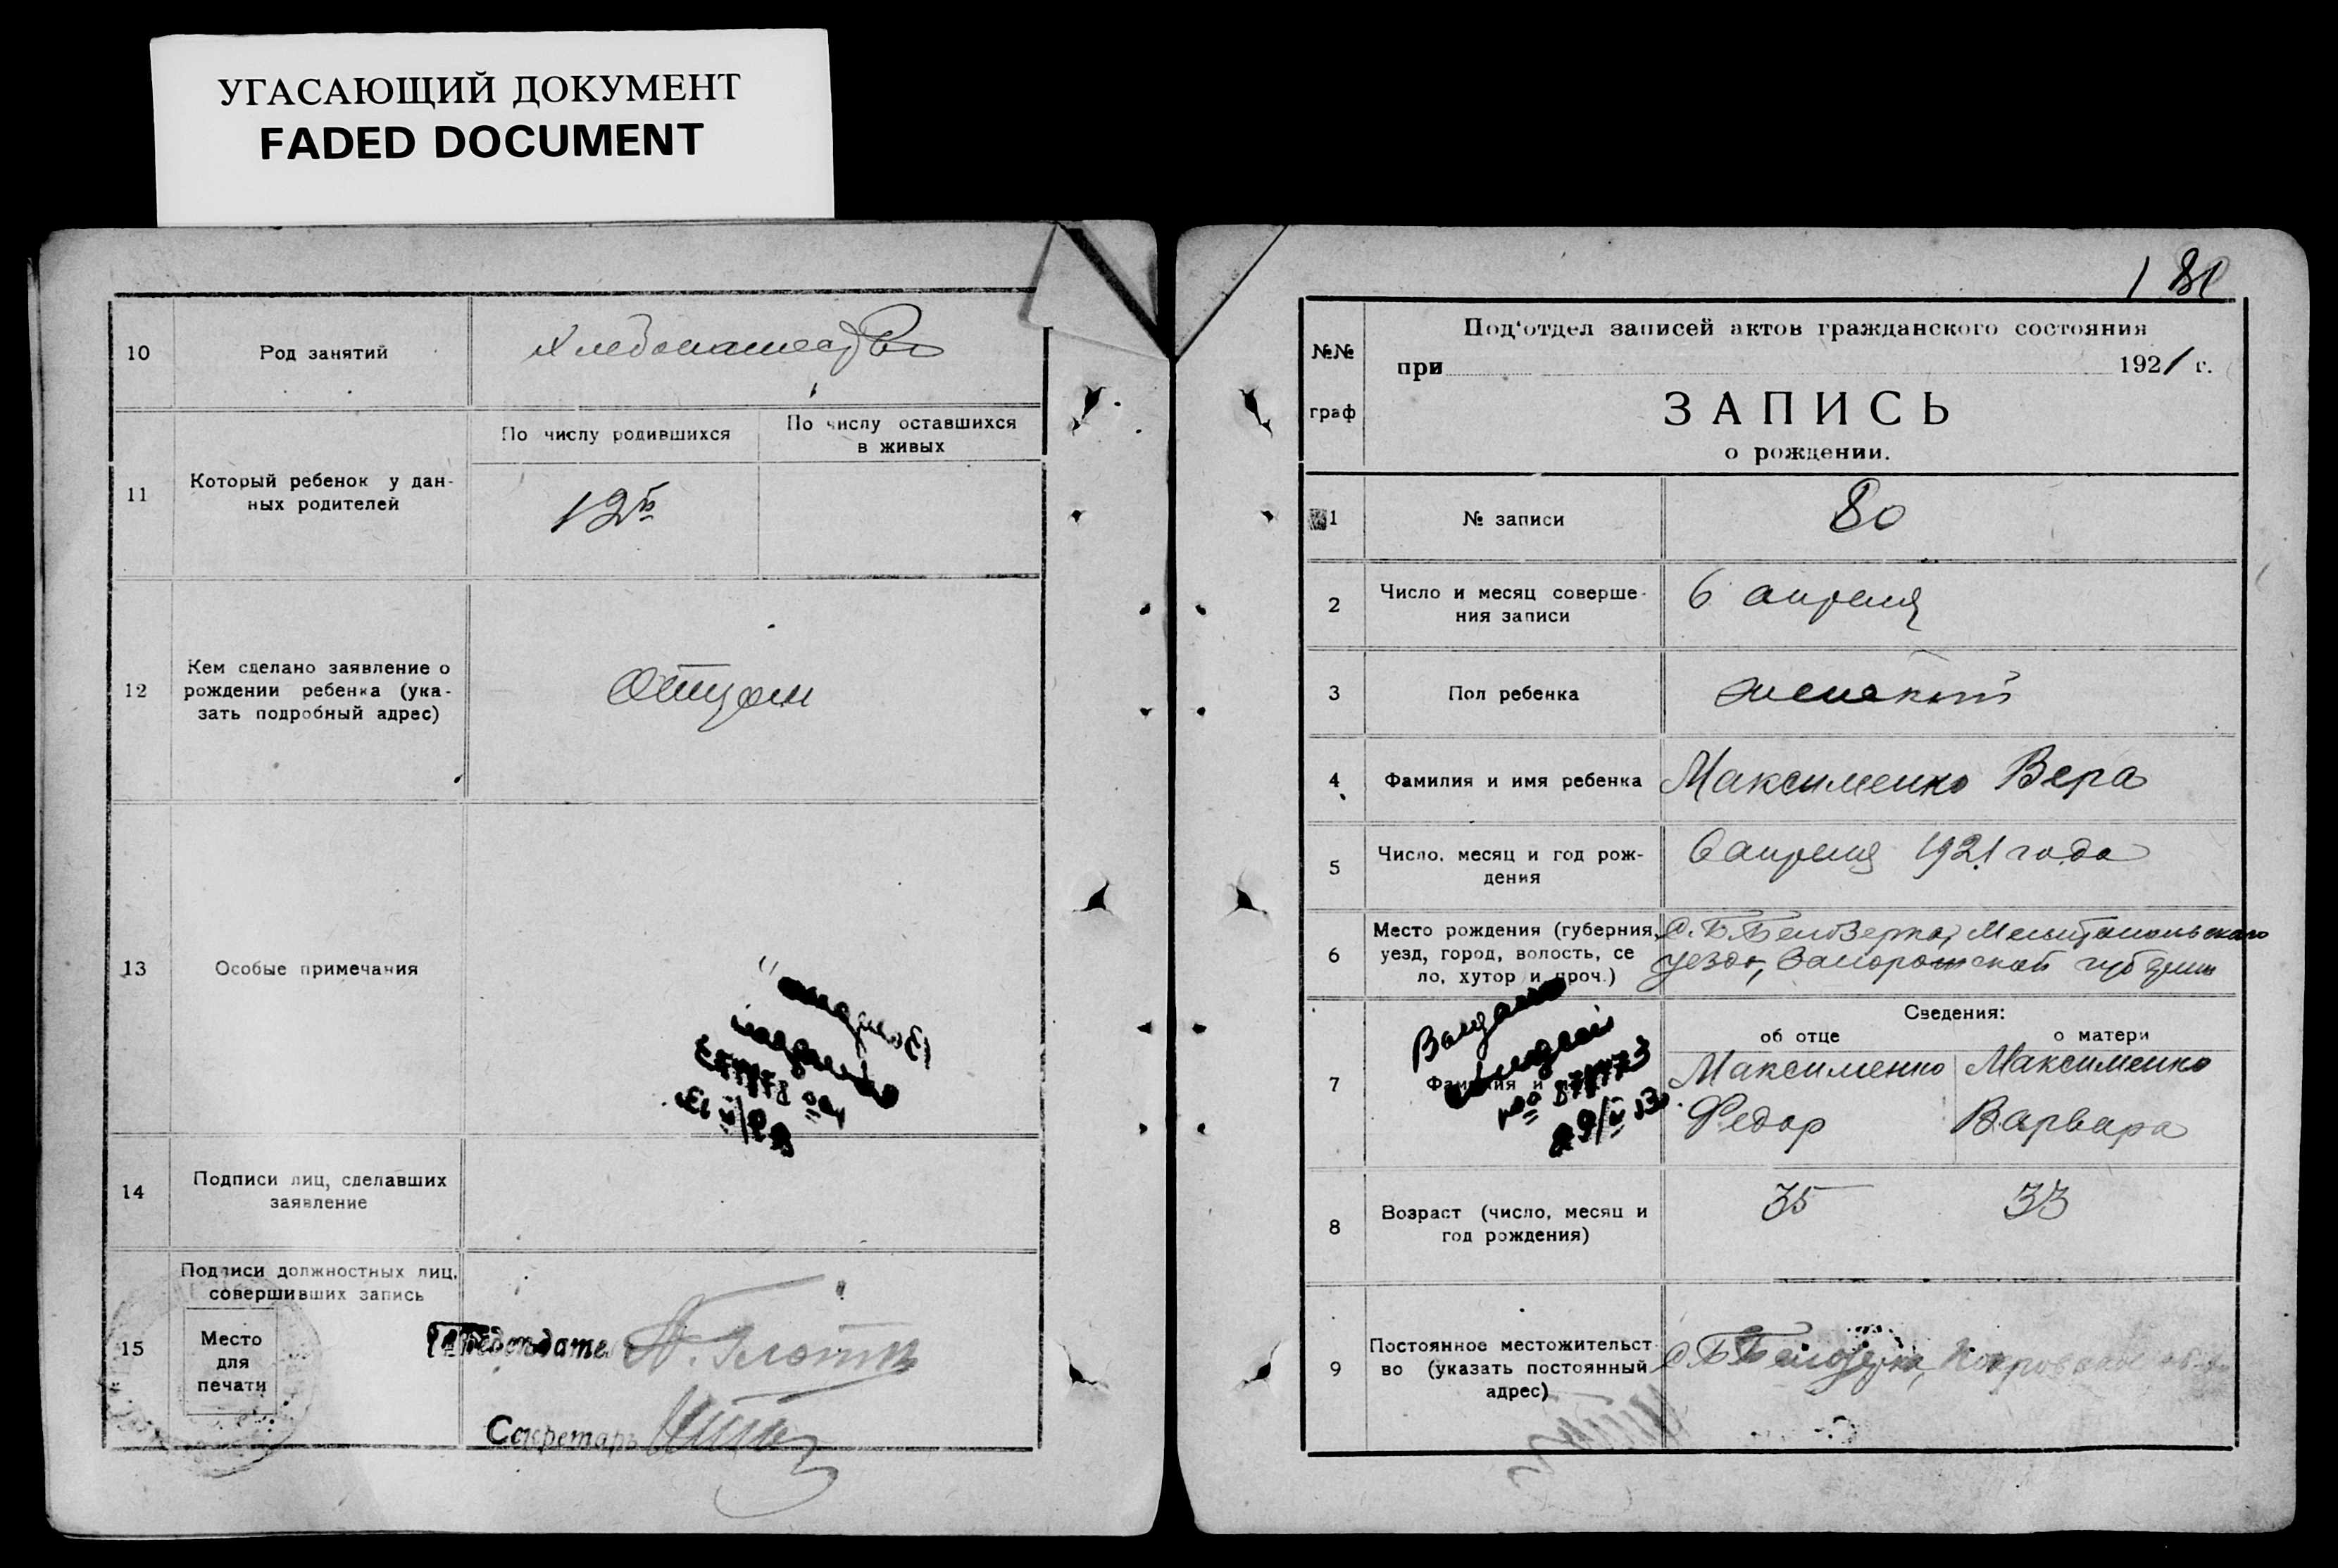 УГАСАЮЩИЙ ДОКУМЕНТ
FADED DOCUMENT
10 Род занятий Хлебопашество
11 Который ребенок у дан-
ных родителей
По числу родившихся
По числу оставшихся
в живых
12й
12 Кем сделано заявление о
рождении ребенка (ука-
зать подробный адрес)
Отцом
13 Особые примечания
14 Подписи лиц, сделавших
заявление
15 Подписи должностных лиц,
совершивших запись
Место
для
печати
Председатель
Секретарь
№№
граф
Под'отдел записей актов гражданского состояния
при 1921 г.
ЗАПИСЬ
о рождении.
1 № записи 80
2 Число и месяц соверше-
ния записи
6 апреля
3 Пол ребенка женский
4 Фамилия и имя ребенка Максименко Вера
5 Число, месяц и год рож-
дения
6 апреля 1921 года
6 Место рождения (губерния,
уезд, город, волость, се
ло, хутор и проч.)
С. Б. Белозерка, Мелитопольского
уезда, Запорожской губернии
7 Фамилия и
Сведения:
об отце
о матери
Максименко
Федор
Максименко
Варвара
8 Возраст (число, месяц и
год рождения)
35
33
9 Постоянное местожительст
во (указать постоянный
адрес)
С. Б. Белозерка,